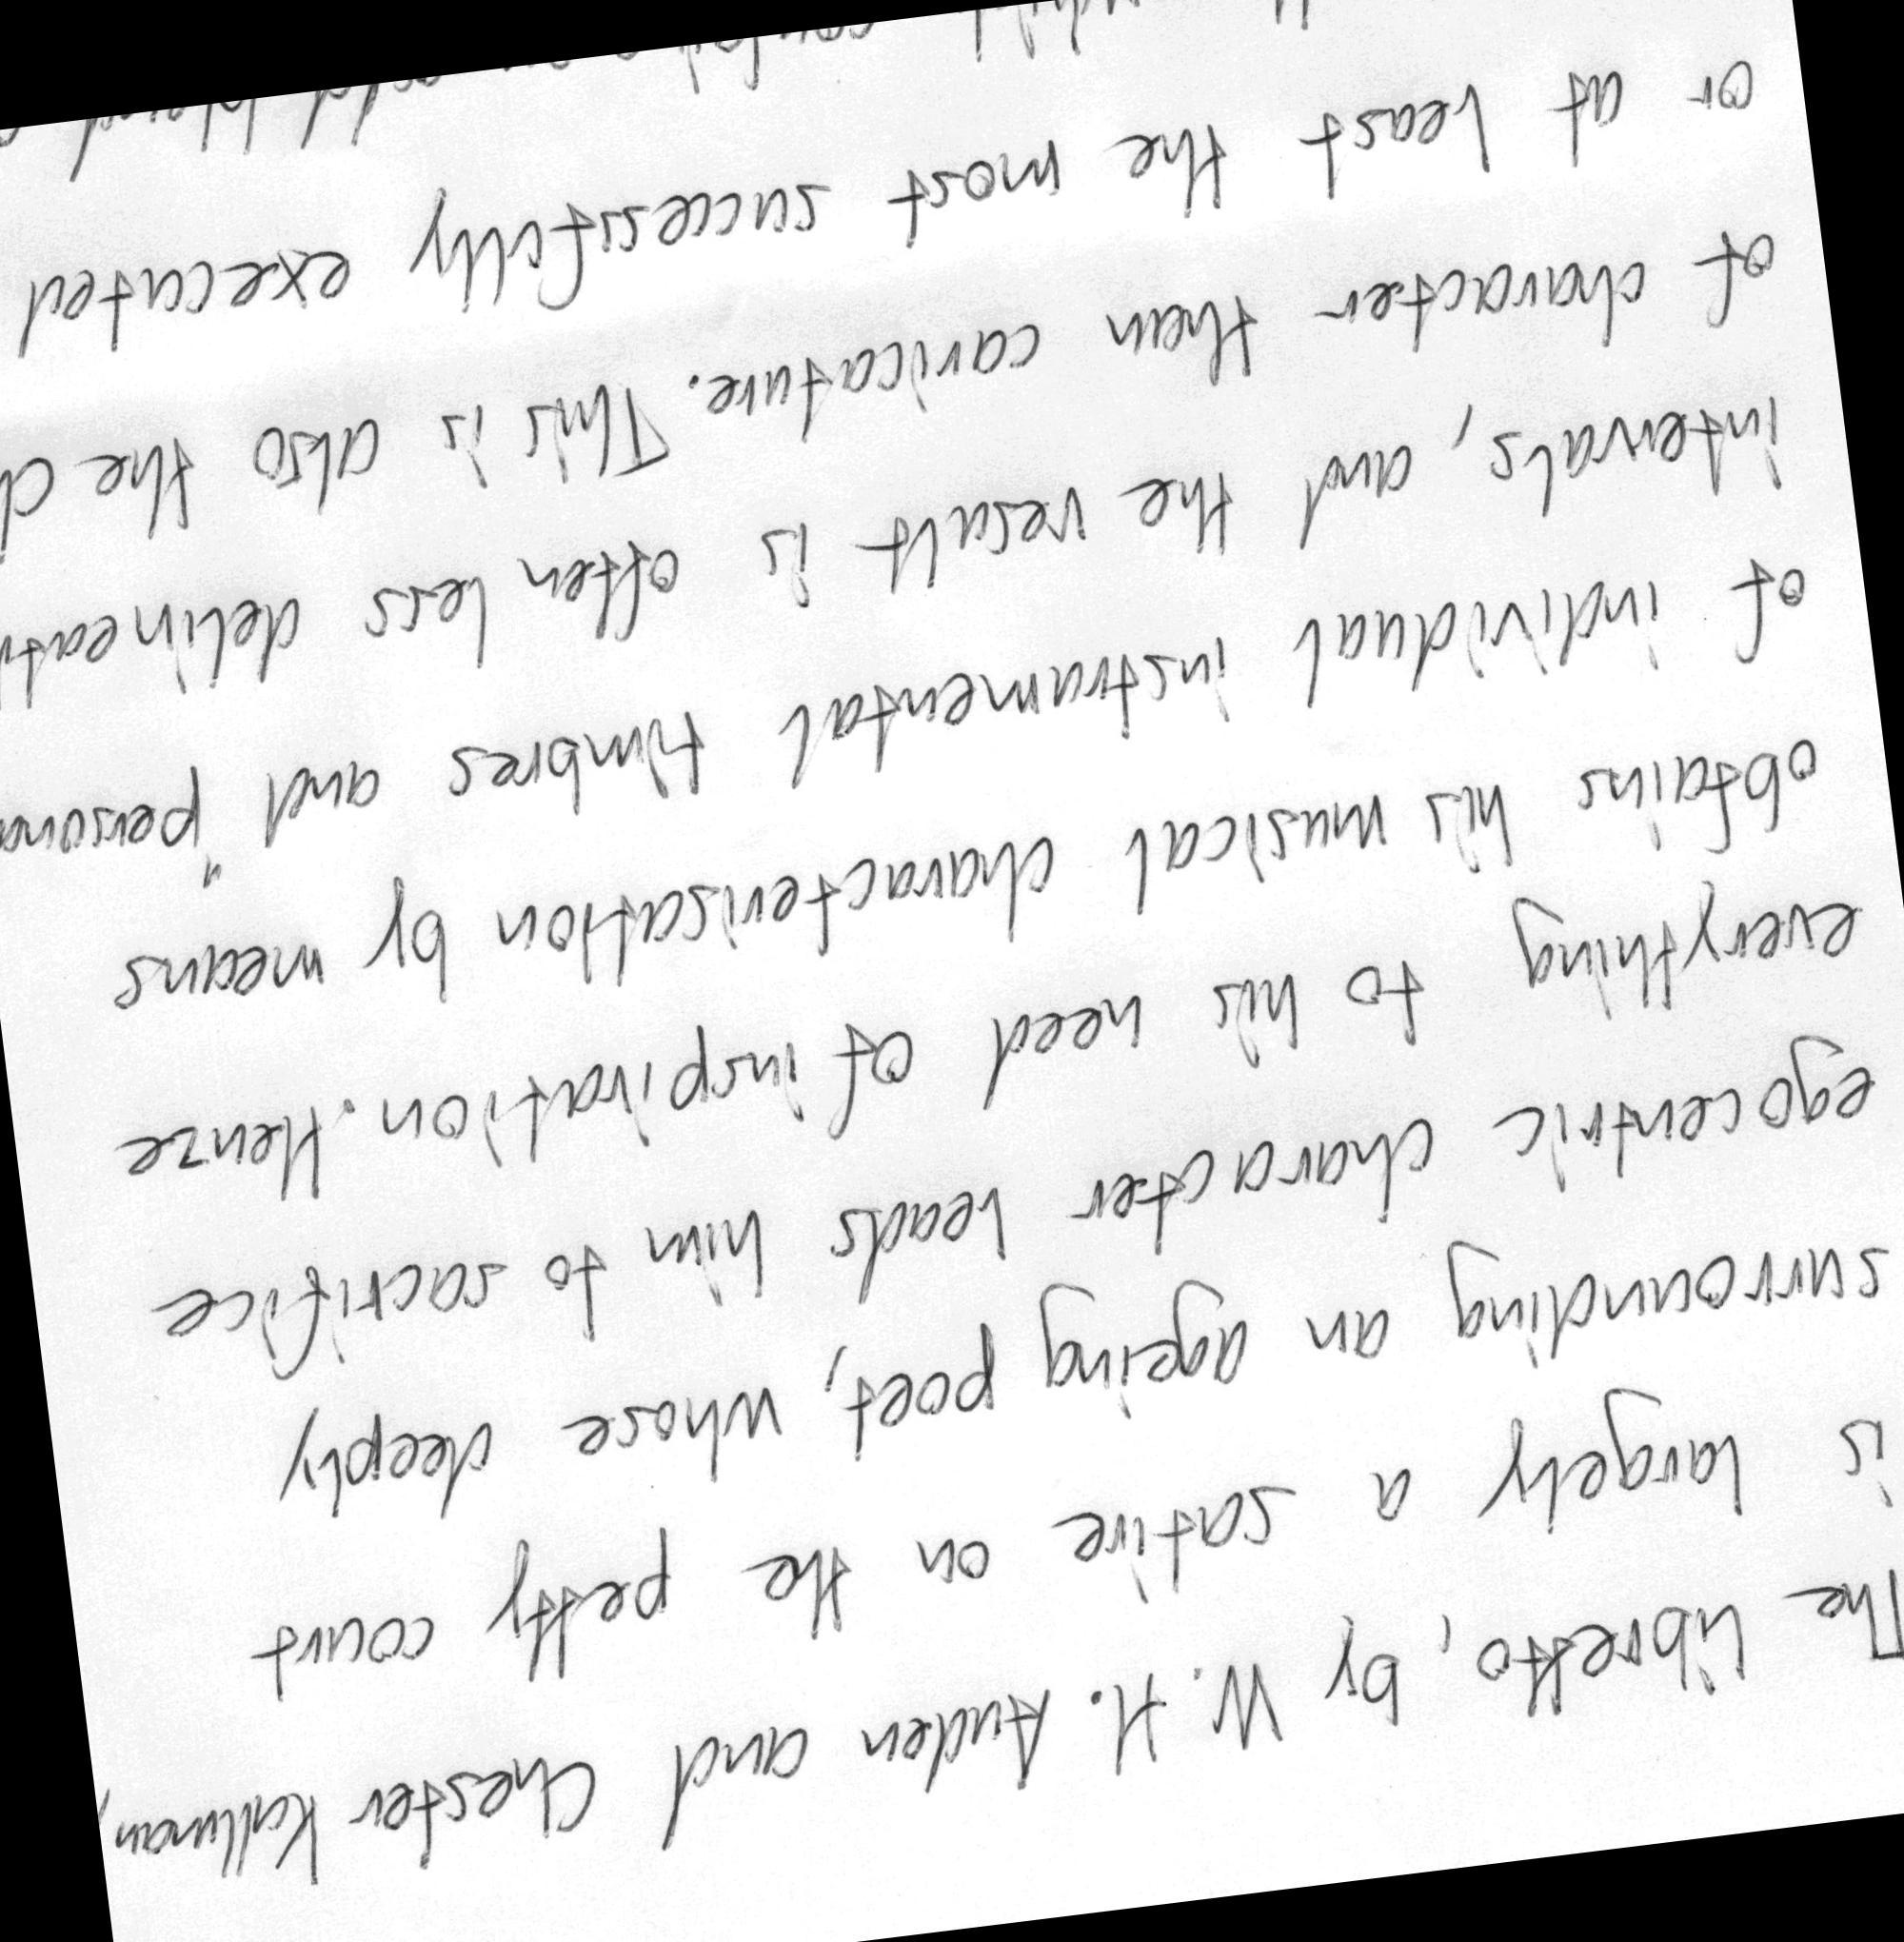 The libretto, by W. H. Auden and Chester Kallman,
is largely a satire on the petty court
surrounding an ageing poet, whose deeply
egocentric character leads him to sacrifice
everything to his need of inspiration. Henze
obtains his musical characterisation by means
of individual instrumental timbres and "persona
intervals, and the result is often less delineati
of character than caricature. This is also the c
or at least the most successfully executed